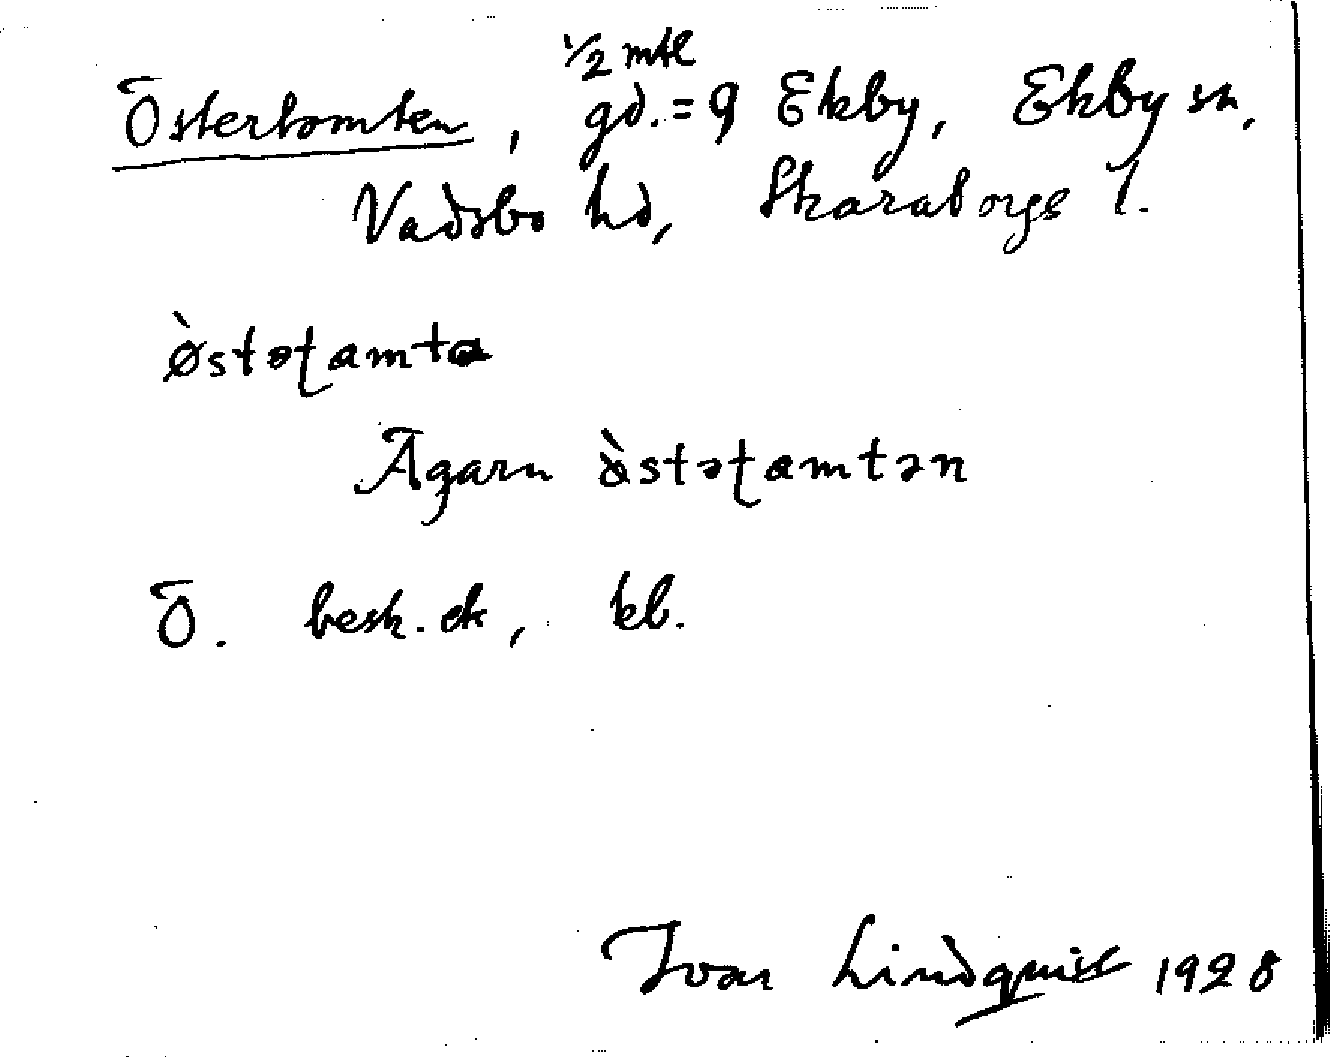 ½ mtl
Östertomten, gd. = 9 Ekby, Ekby sn,
Vadsbo hd, Skaraborgs l.
ø̀stəʈamta
Ägarn ø̀stəʈamtən
Ö. besk. ek, kb.
Ivar Lindquist 1928